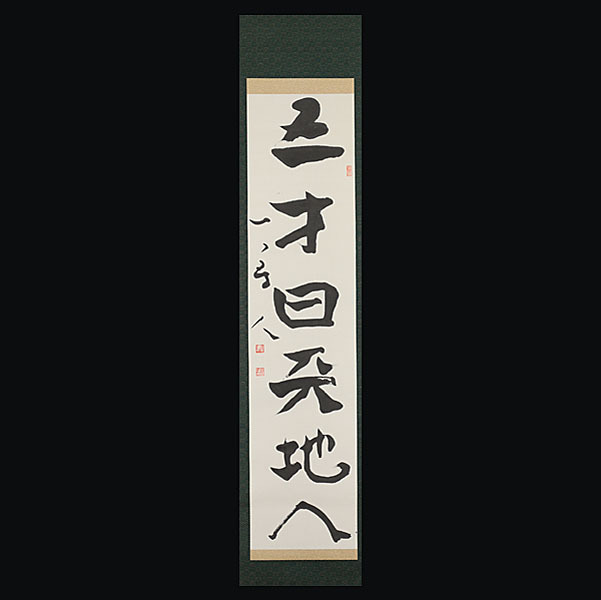 三才曰天地人